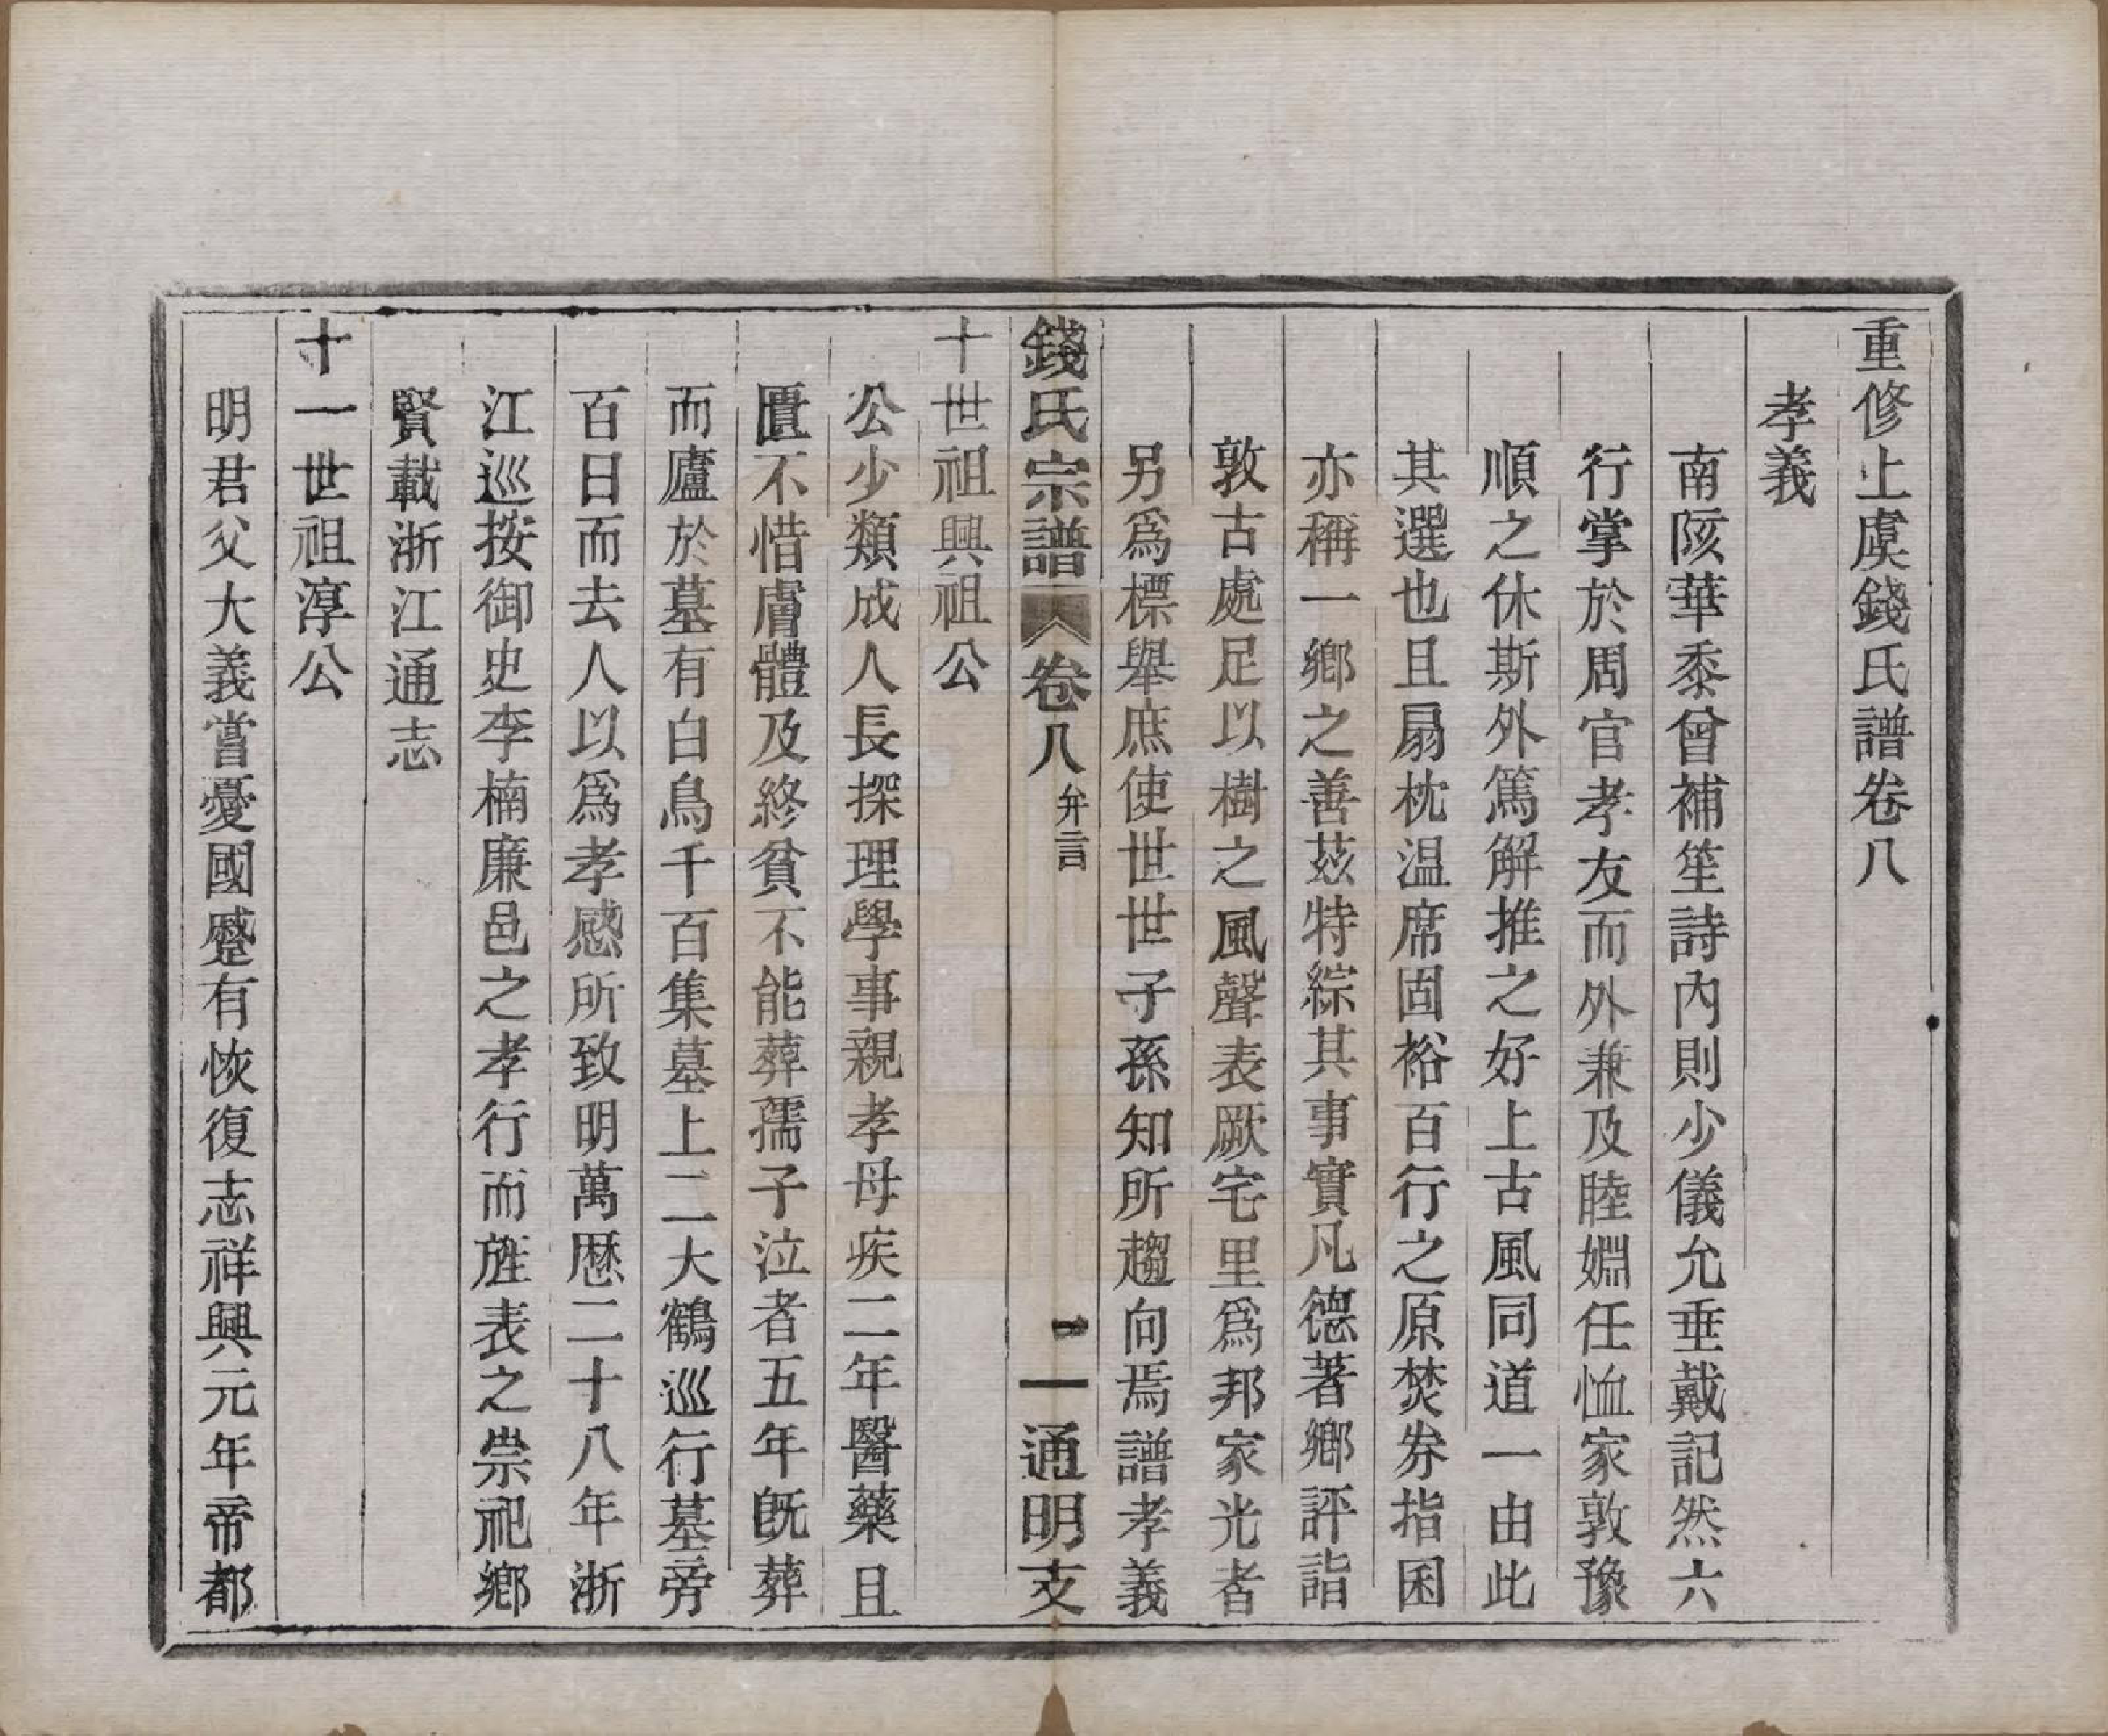 重修上虞錢氏譜卷八
孝義
南陔華黍曾補笙詩內則少儀允垂戴記然六
行掌於周官孝友而外兼及睦婣任恤家敦豫
順之休斯外篤解推之好上古風同道一由此
其選也且扇枕温席固裕百行之原焚券指囷
亦稱一鄉之善茲特綜其事實凡德著鄉評詣
敦古處足以樹之風聲表厥宅里爲邦家光者
另爲標舉庶使世世子孫知所趨向焉譜孝義
錢氏宗譜 卷八 弁言 一 通明支
十世祖興祖公
公少類成人長探理學事親孝母疾二年醫藥且
匱不惜膚體及終貧不能葬孺子泣者五年旣葬
而廬於墓有白鳥千百集墓上二大鶴巡行墓旁
百日而去人以爲孝感所致明萬厯二十八年浙
江巡按御史李楠廉邑之孝行而旌表之崇祀鄉
賢載浙江通志
十一世祖淳公
明君父大義嘗憂國蹙有恢復志祥興元年帝都